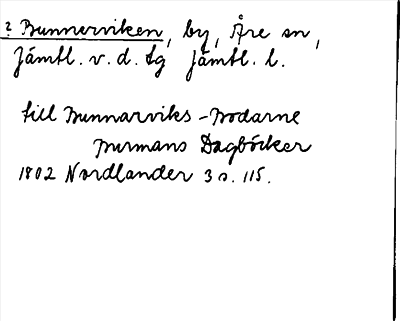 ? Bunnerviken, by, Åre sn,
Jämtl. v. d. tg Jämtl. l.
till Bunnarviks-Bodarne
Burmans Dagböcker
1802 Nordlander 3 s. 115.